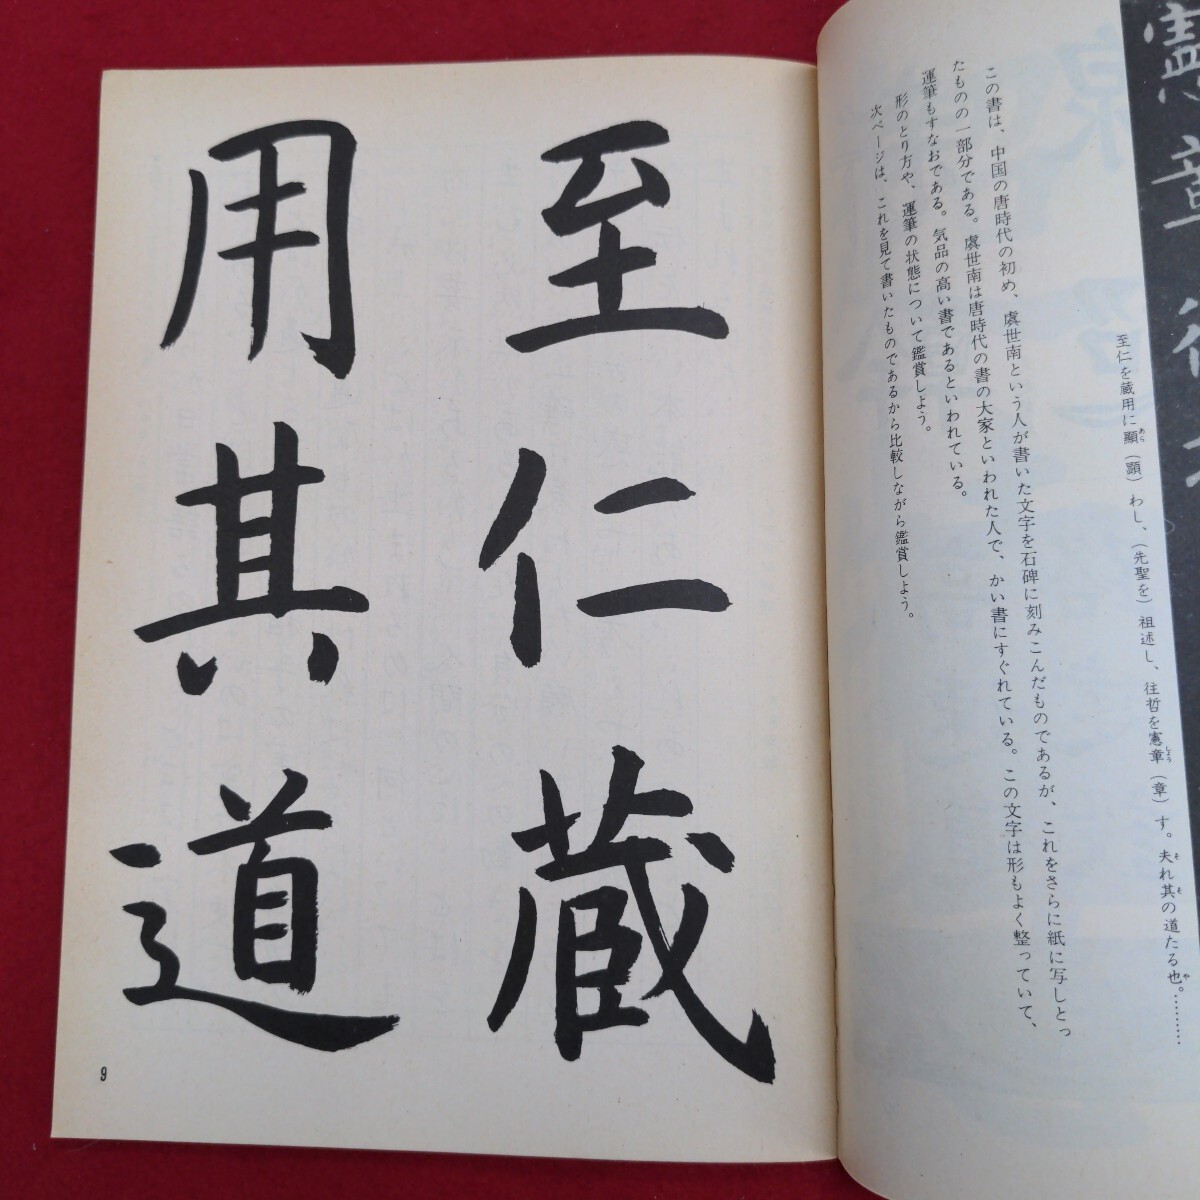 憲章往
至仁を蔵用に顯(顕)わし、(先聖を)祖述し、往哲を憲章(章)す。夫れ其の道たる也。………
この書は、中国の唐時代の初め、虞世南という人が書いた文字を石碑に刻みこんだものであるが、これをさらに紙に写しとっ
たものの一部分である。虞世南は唐時代の書の大家といわれた人で、かい書にすぐれている。この文字は形もよく整っていて、
運筆もすなおである。気品の高い書であるといわれている。
形のとり方や、運筆の状態について鑑賞しよう。
次ページは、これを見て書いたものであるから比較しながら鑑賞しよう。
至仁蔵
用其道
9